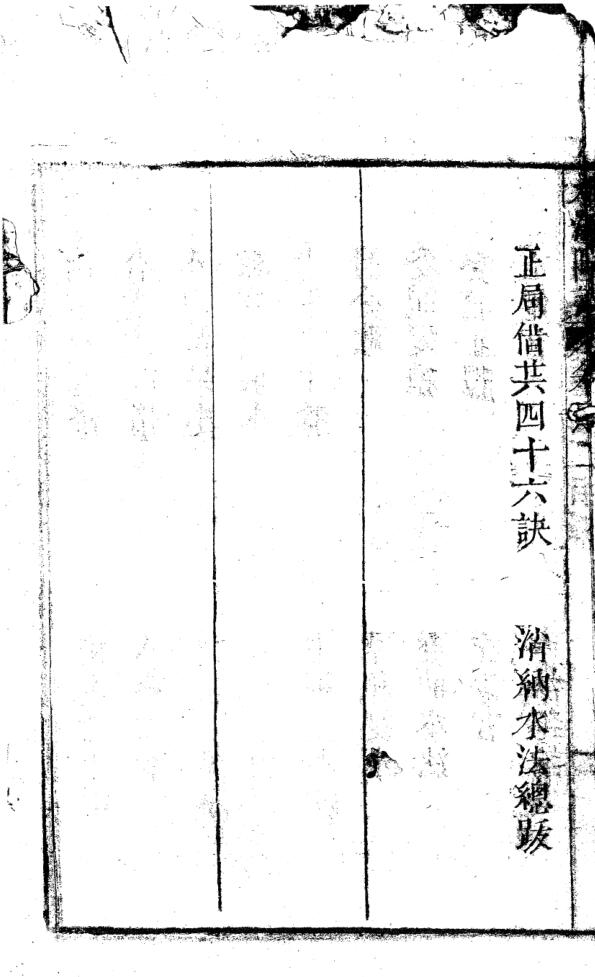 正局借共四十六訣　消納水法總跋